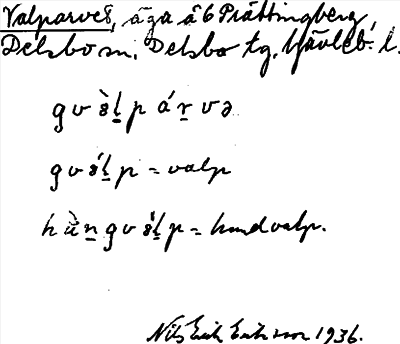 Valparvet, äga å 6 Prättingberg,
Delsbo sn. Delsbo tg. Gävleb. l.
gvə̀l̠p ár̠və
gvə́l̠p = valp
hùn̠gvə́l̠p = hundvalp.
Nils Erik Eriksson 1936.